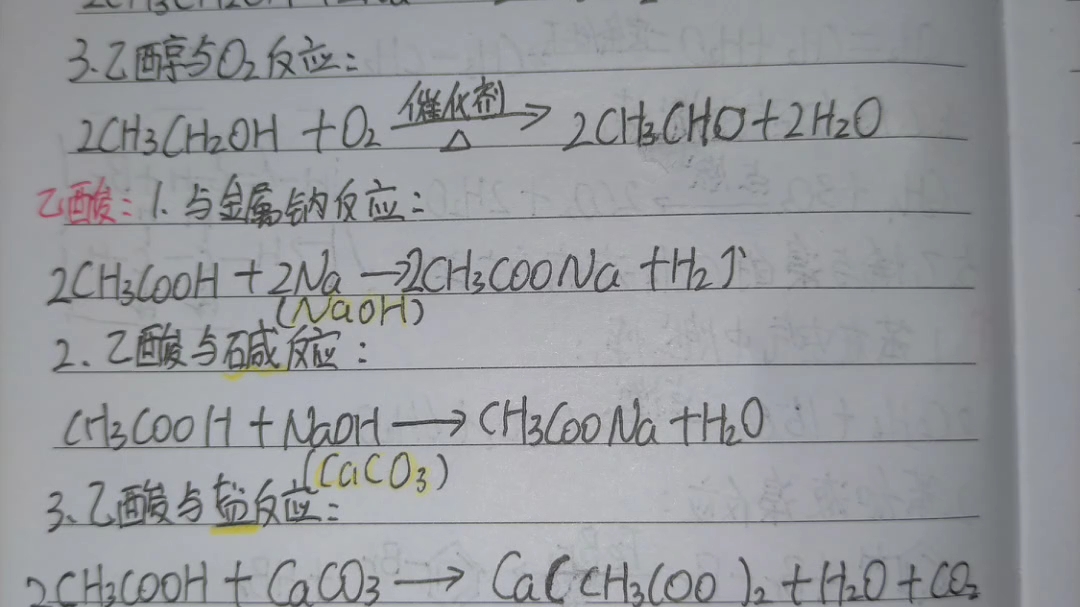 3.乙醇与O2反应:
2CH3CH2OH + O2 催化剂 △ → 2CH3CHO+2H2O
乙酸: 1.与金属钠反应:
2CH3COOH + 2Na →2CH3COONa + H2↑
(NaOH)
2、乙酸与碱反应:
CH3COOH + NaOH → CH3COONa + H2O
(CaCO3)
3、乙酸与盐反应:
2CH3COOH + CaCO3 → Ca(CH3COO)2 + H2O + CO2